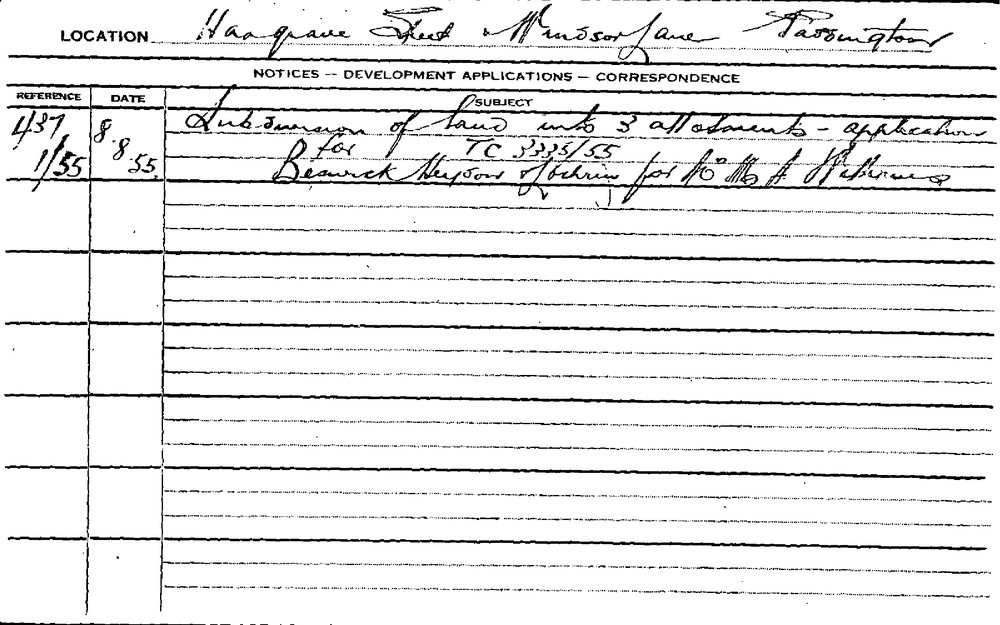 LOCATION Hargrave Street & Windsor Lane Paddington
NOTICES — DEVELOPMENT APPLICATIONS — CORRESPONDENCE
REFERENCE DATE SUBJECT
437 8 Subdivision of land into 3 allotments - application
1/55 8 55. for TC 3335/55
Beswick for A